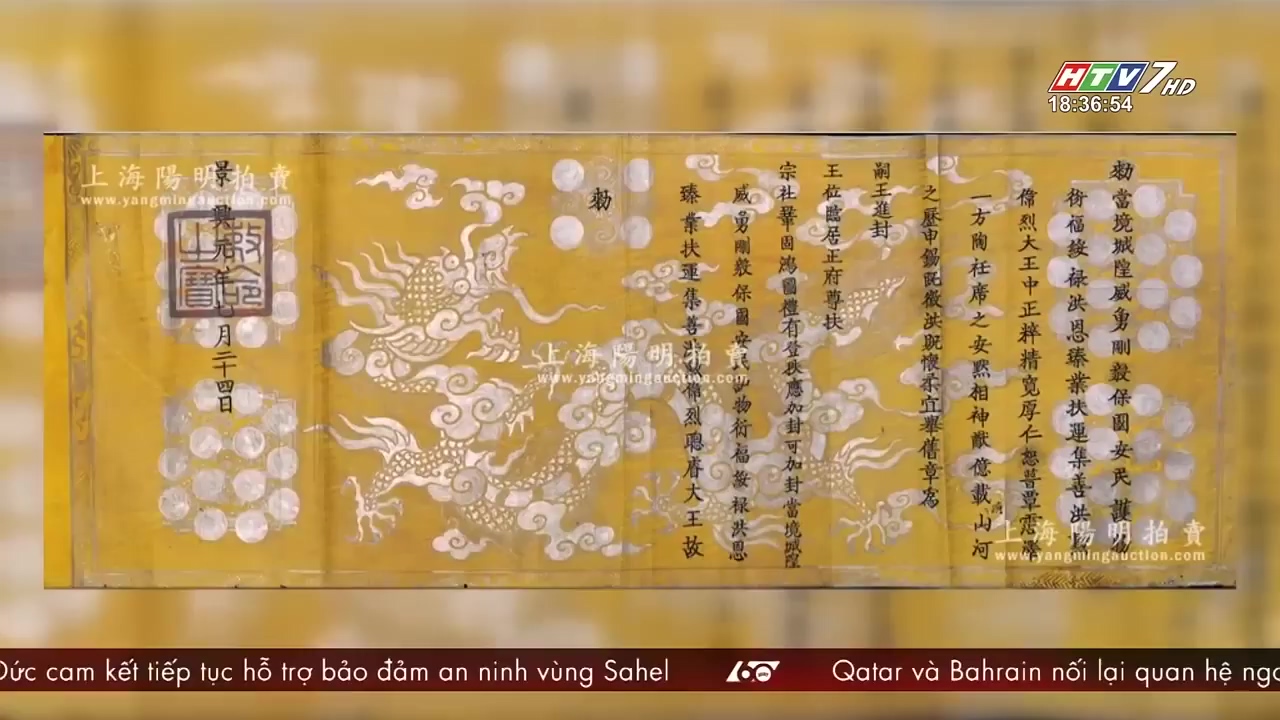 HTV7 HD
18:36:54
勑
當境城隍威勇剛毅保國安民護物
衍福綏禄洪恩臻業扶運集善洪
偉烈大王中正粹精寬厚仁恕普覃
一方陶衽席之安黙相神猷億載山河
之壓申錫旣徵洪貺懷柔宜舉舊章為
嗣王進封
王位臨居正府尊扶
宗社鞏固鴻圖禮有登秩應加封可加封當境城隍
威勇剛毅保國安民物衍福綏禄洪恩
臻業扶運集善洪偉烈聰睿大王故
勑
景興元年七月二十四日
敕命之寶
上海陽明拍賣
www.yangmingauction.com
上海陽明拍賣
www.yangmingauction.com
上海陽明拍賣
www.yangmingauction.com
Đức cam kết tiếp tục hỗ trợ bảo đảm an ninh vùng Sahel
60 giây
Qatar và Bahrain nối lại quan hệ